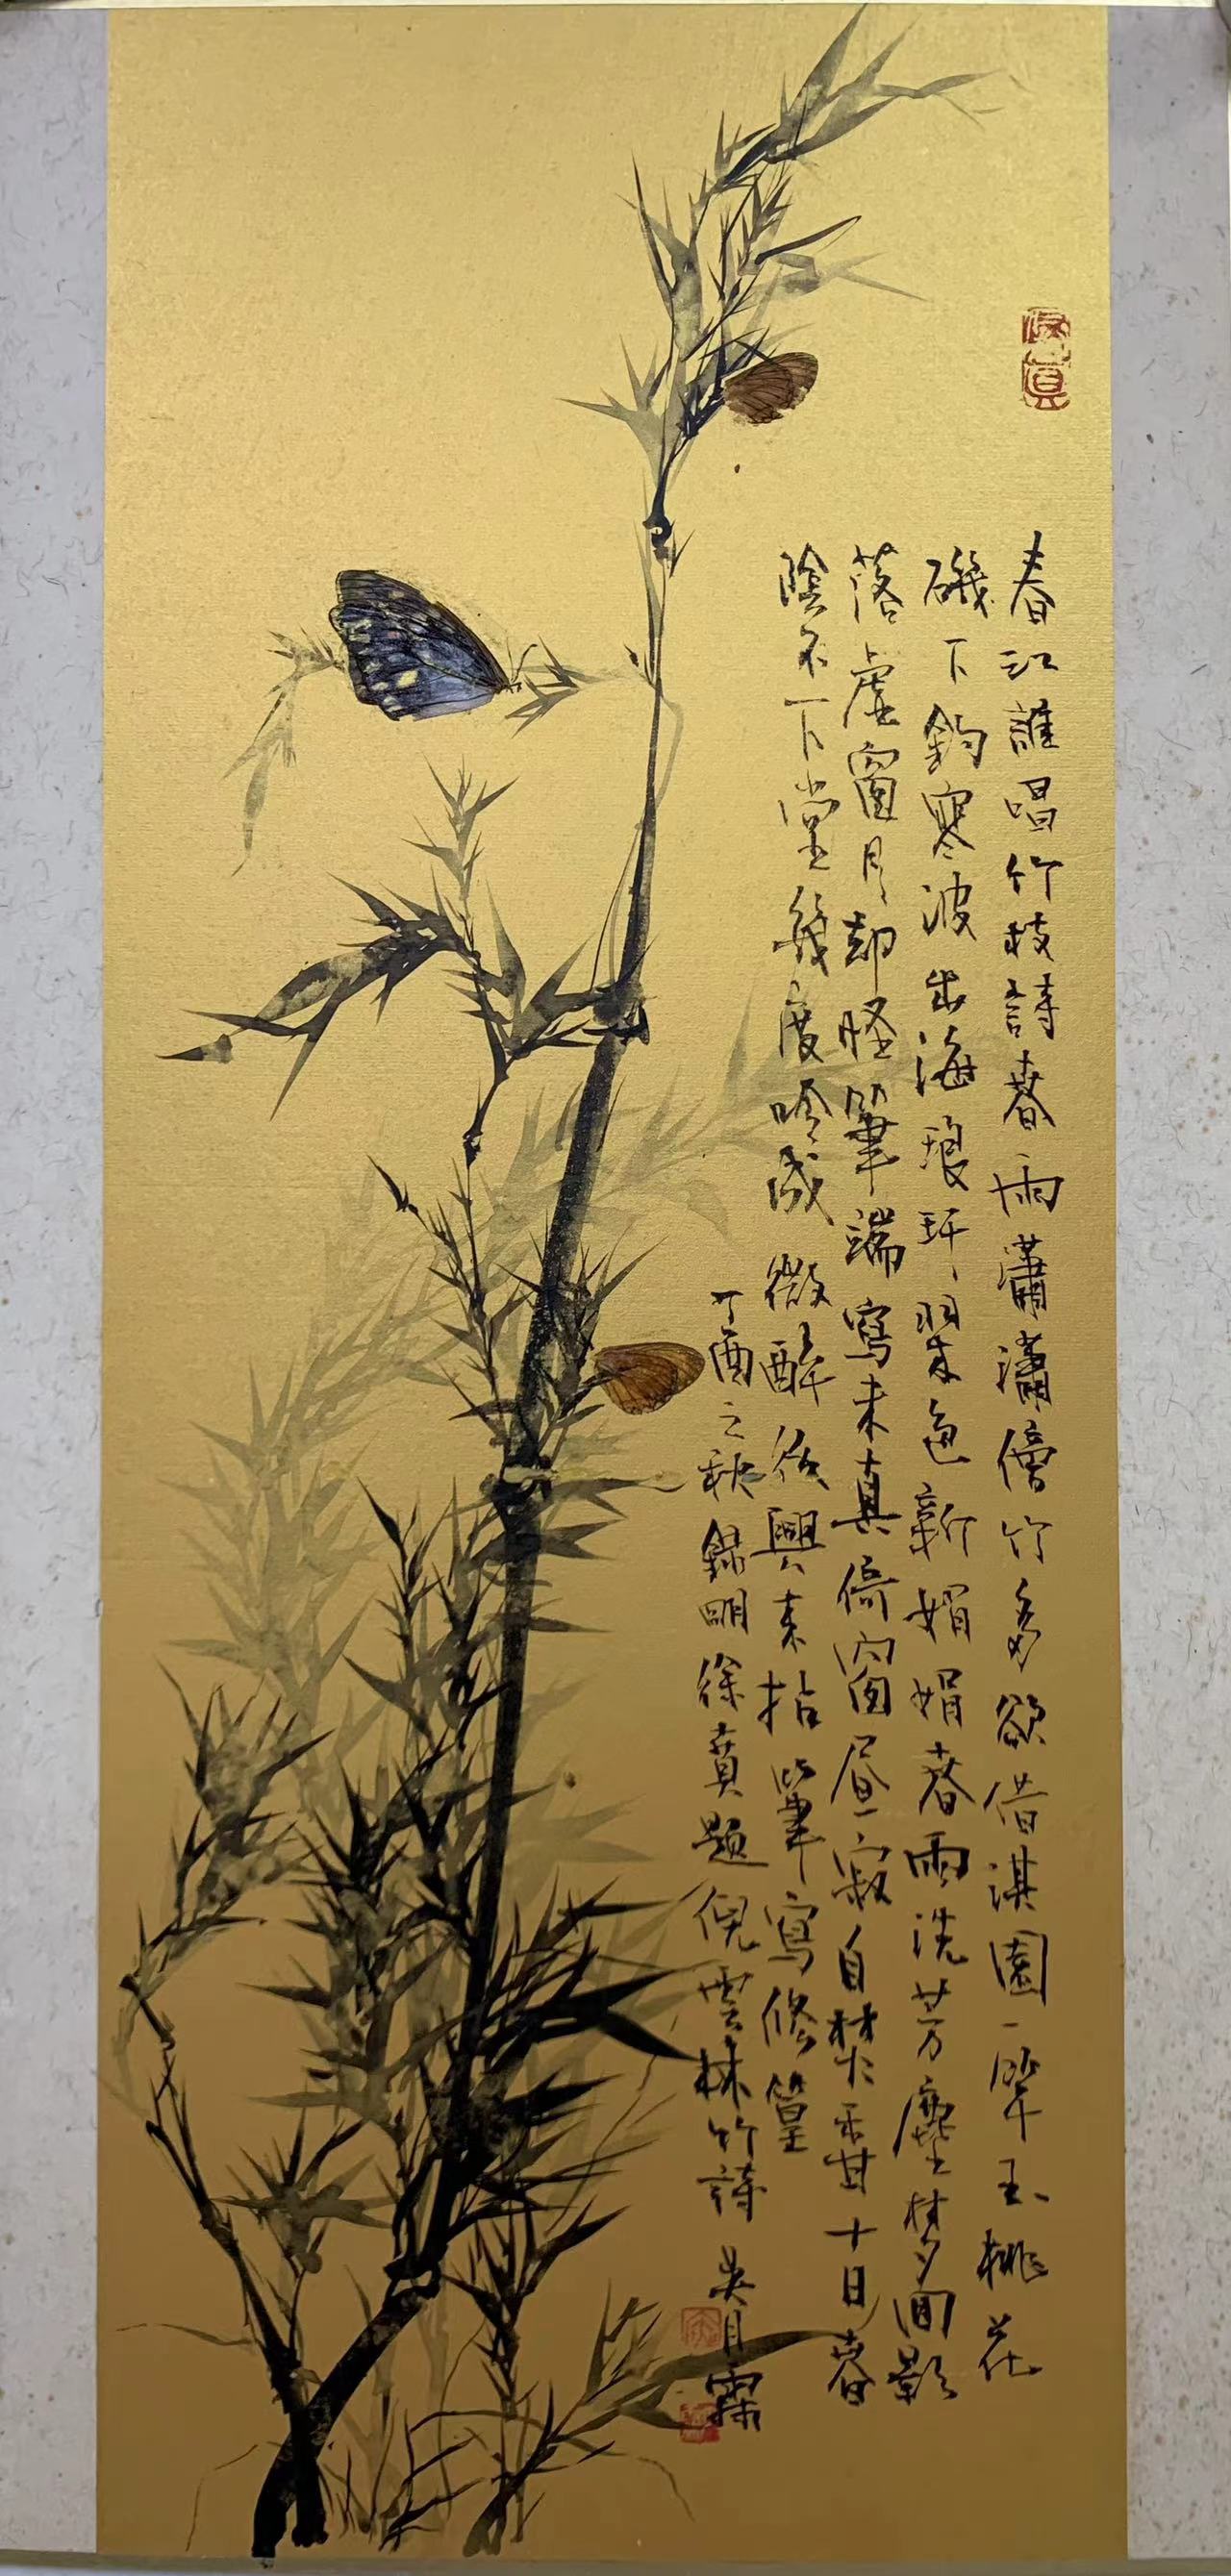 春江誰唱竹枝詩春雨瀟瀟傍竹多欲借淇園一犖玉桃花
磯下釣寒波出海琅玕翠色新娟娟春雨洗芳塵夢回影
落虛窗月却怪筆端寫来真倚窗晝寂自焚香甘十日春
陰不下堂幾度吟成微醉後興来拈筆寫脩篁
丁酉之秋錄明徐賁題倪雲林竹詩 吴月霖